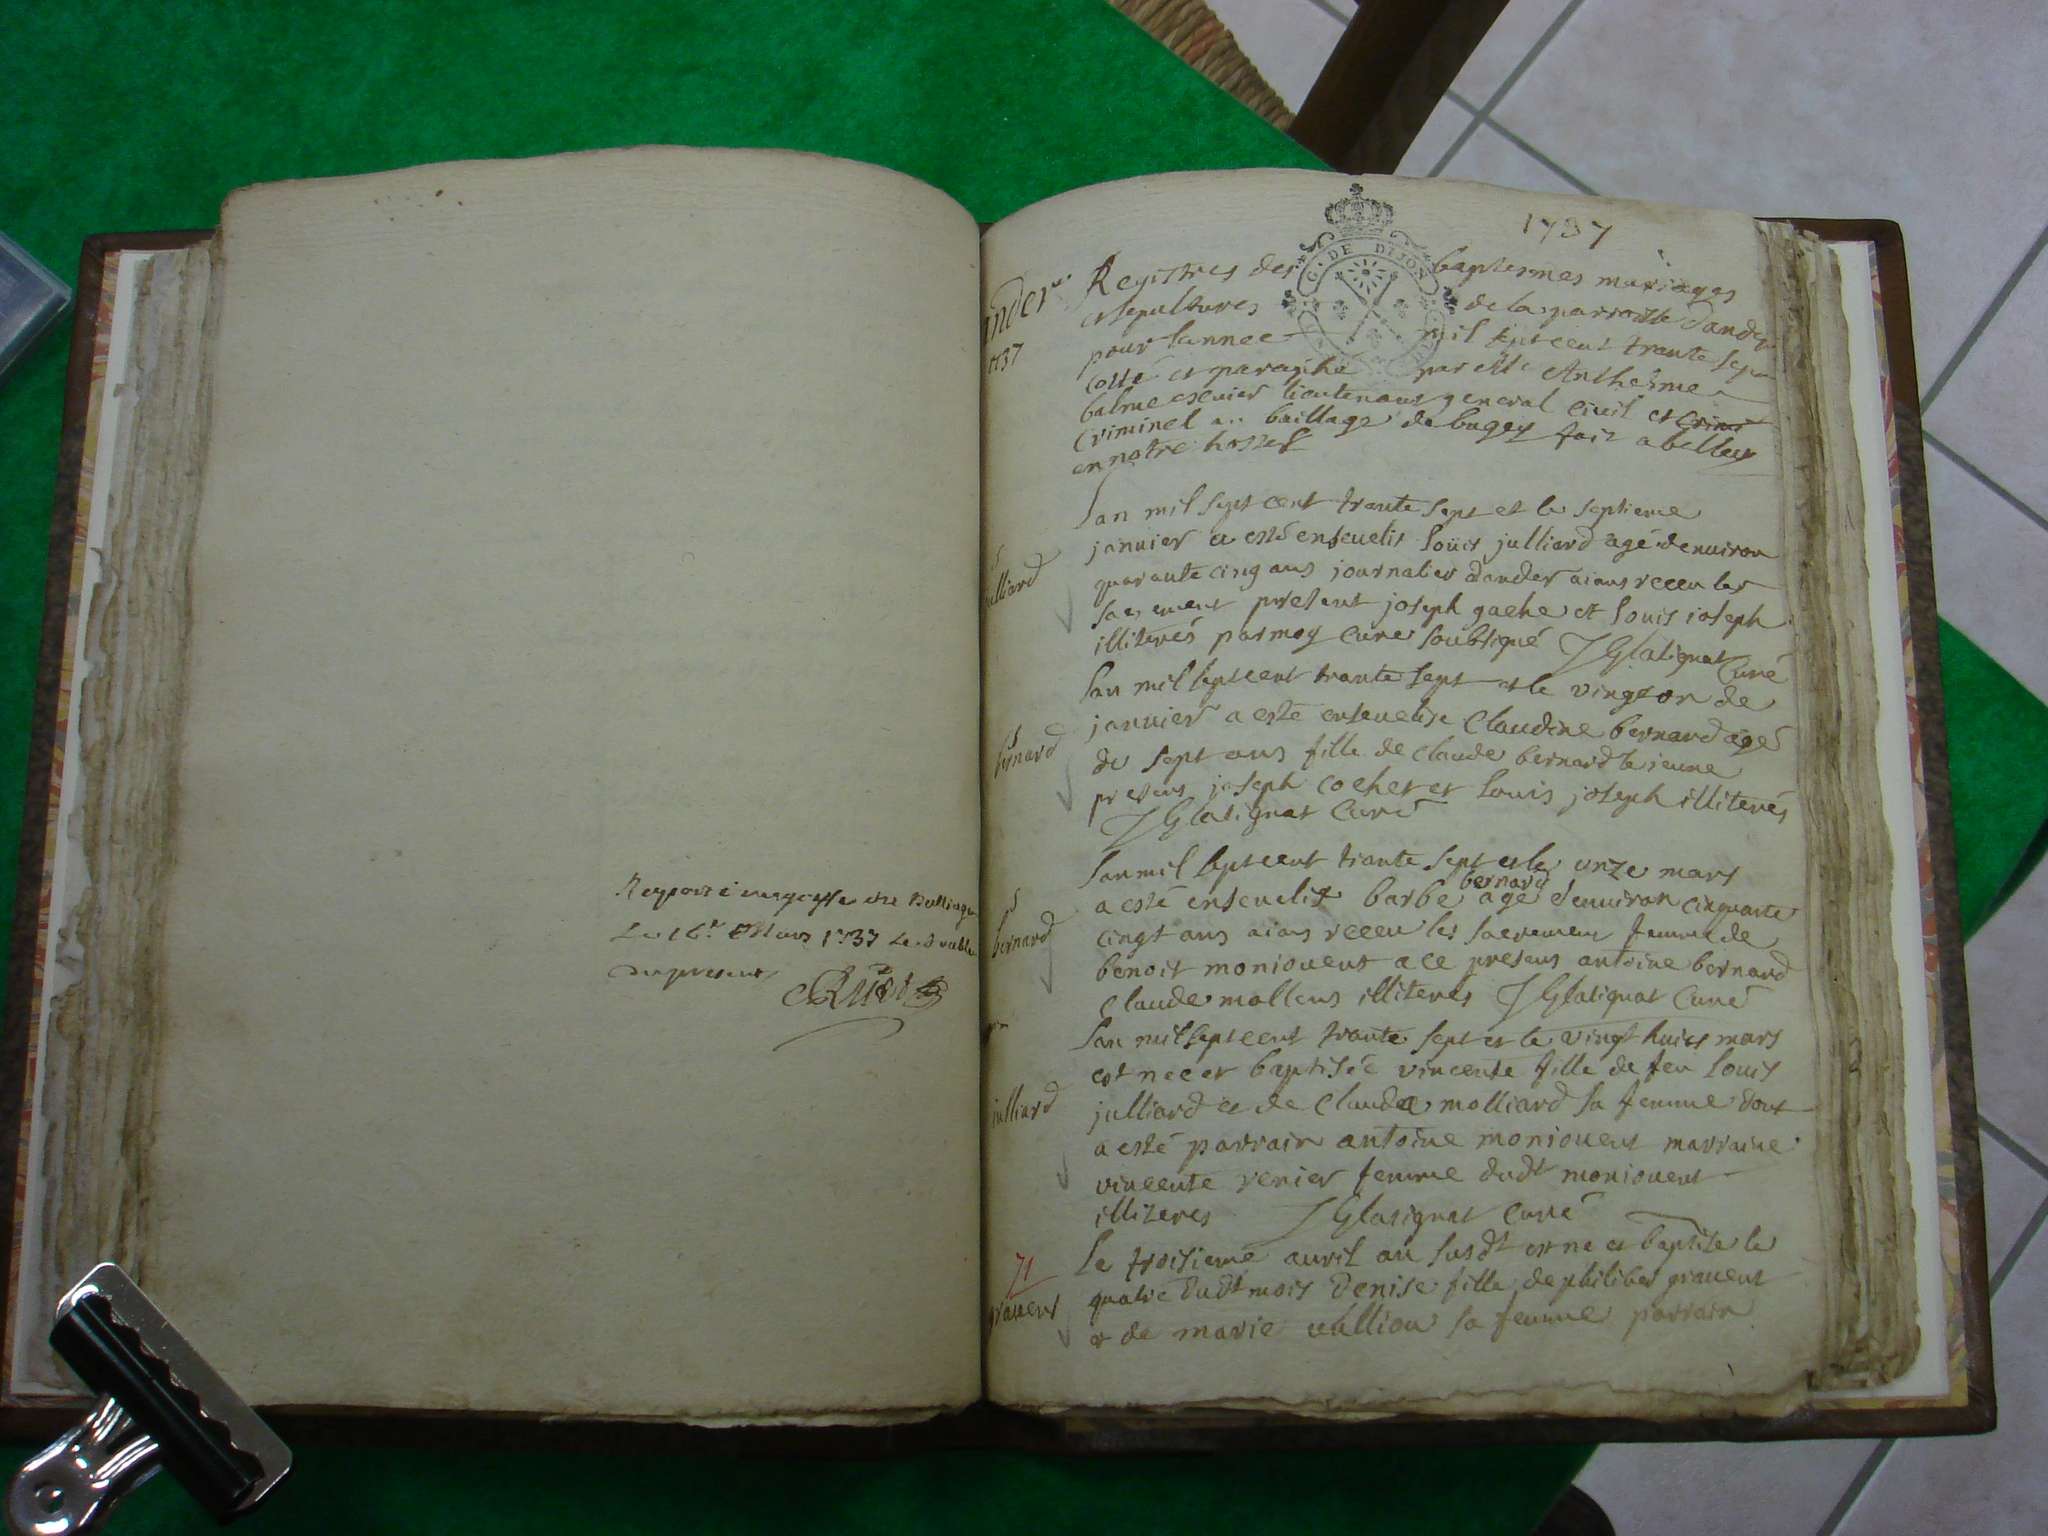 Le 16e Mars 1737 Le double
du present
1737
G. DE DIJON
ander
1737
Registres des baptesmes mariages
et sepultures de la parroisse dander
pour lannee mil sept cent trante sept
cotté et paraphé par Me Anthelme
balme escuier lieutenant general civil et
criminel au baillage de bugey fait a belley
en notre hostel
Lan mil sept cent trante sept et le septieme
janvier a esté enseuelis Loüis julliard agé denuiron
quarante cinq ans journalier dander aians receu les
sacrement present joseph gache et Louis joseph
illiterés par moy curé soubsigné J Glatignat Curé
julliard
Lan mil sept cent trante sept et le vingt de
janvier a esté enseuelise Claudine bernard agé
de sept ans fille de claude bernard le jeune
presens joseph cochet et Louis joseph illiterés
J Glatignat Curé
bernard
Lan mil sept cent trante sept et le unze mars
a esté enseuelis barbe bernard agé denuiron cinquante
cingt ans aians receu les sacrement femme de
benoit moniouent a ce presens antoine bernard
Claude mollens illiteres J Glatignat Curé
bernard
Lan mil sept cent trante sept et le vingt huict mars
est nee et baptisée vincente fille de feu Louis
julliard et de Clauda molliard sa femme dont
a esté parrain antoine moniouent marraine
vincente renier femme dudt moniouent
illiteres J Glatignat Curé
julliard
Le troisieme auril an susdt est ne et baptise le
quatre dudt mois Denise fille de philibert grauent
et de marie vullion sa femme parrain
71
grauent